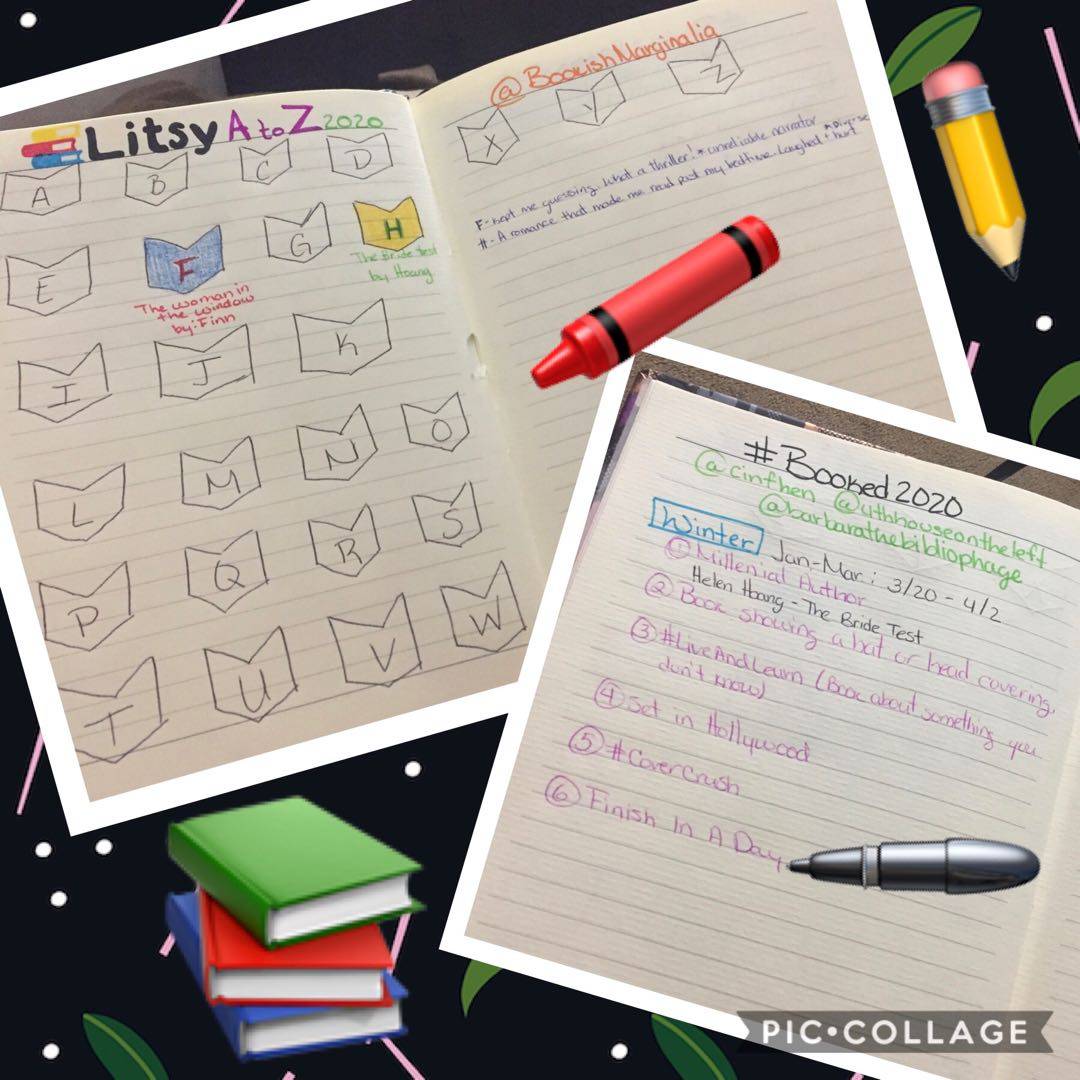 Litsy A to Z 2020
A B C D
E F G H
The Bride Test
by Hoang
The woman in
the window
by: Finn
I J K
L M N O
P Q R S
T U V W
@BookishMarginalia
X Y Z
F- kept me guessing. What a thriller! * unreliable narrator
H- A romance that made me read past my bedtime. Laughed + hurt * Diverse
#Booked2020
@cinfhen @4thhouseontheleft
@barbarathebibliophage
Winter Jan-Mar: 3/20 - 4/2
① Millenial Author
Helen Hoang - The Bride Test
② Book showing a hat or head covering
③ #LiveAndLearn (Book about something you
don't know)
④ Set in Hollywood
⑤ #CoverCrush
⑥ Finish In A Day
PIC•COLLAGE